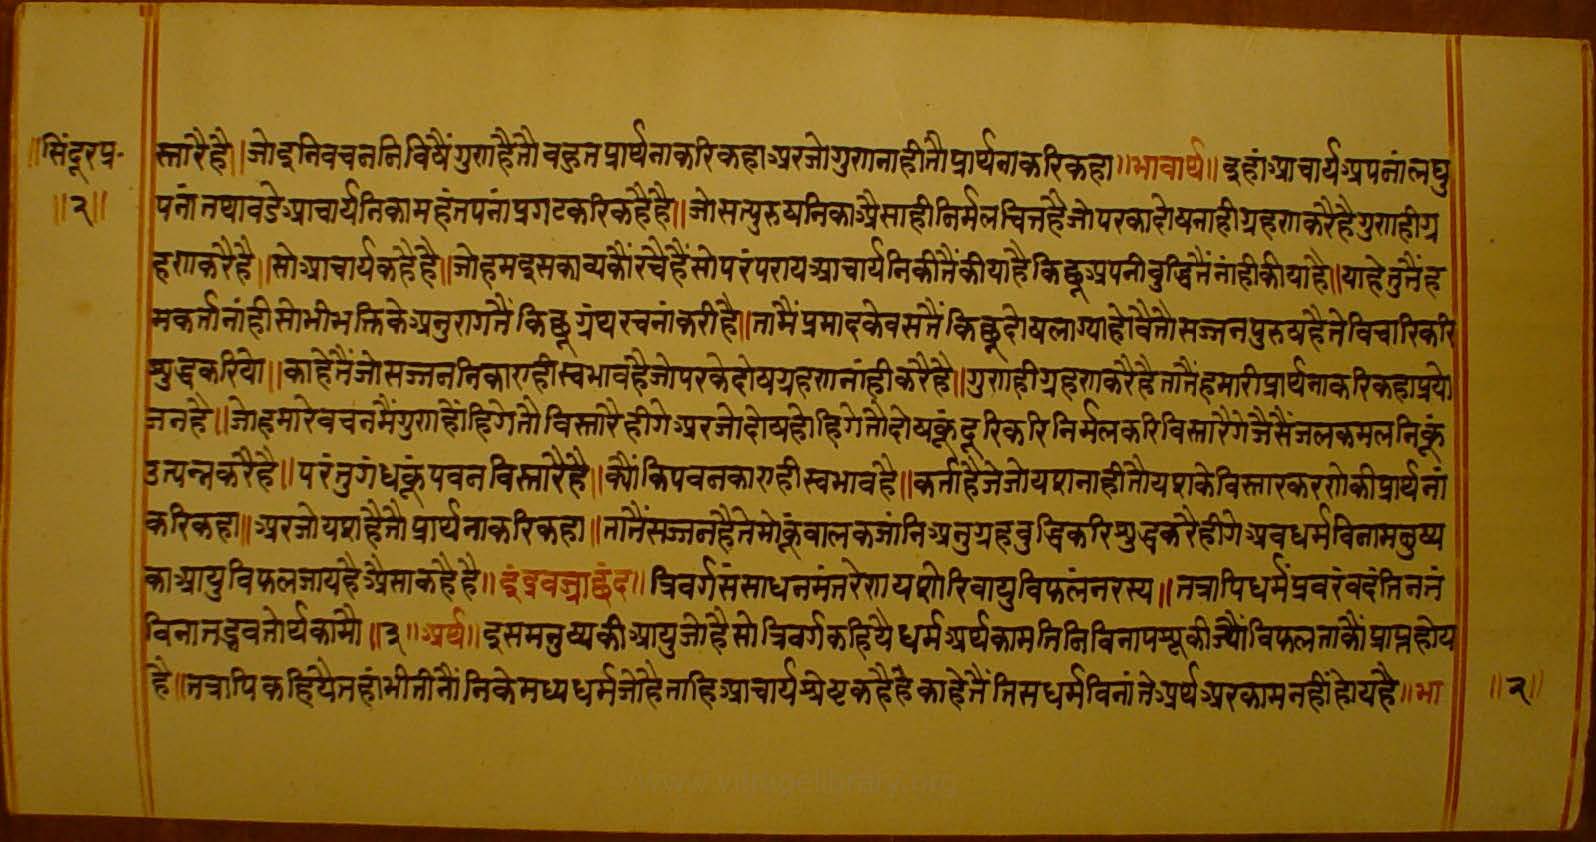 ॥सिंदूरप्र-
॥२॥
स्तारैहै॥जोइनिवचननिविषैंगुणहैतौ वहुतप्रार्थनाकरिकहाअरजोगुणनाहीतौप्रार्थनाकरिकहा॥भावार्थ॥इहांआचार्यअपनांलघु
पनांतथावडेआचार्यनिकामहंतपनांप्रगटकरिकहैहै॥जोसत्पुरुषनिकाअैसाहीनिर्मलचित्तहैजोपरकादोषनाहीग्रहणकरैहैगुणहीग्र
हणकरैहै॥सोआचार्यकहैहै॥जोहमइसकाव्यकौंरचैहैंसोपरंपरायआचार्यनिकीतैंकीयाहैकिछूअपनीवुद्धितैंनांहीकीयाहै॥याहेतुतैंह
मकर्त्तानांहीसोभीभक्तिकेअनुरागतैंकिछूग्रंथरचनांकरीहै॥तामैंप्रमादकेवसतैंकिछूदोषलाग्याहोवैतौसज्जनपुरुषहैतेविचारिकरि
शुद्धकरियो॥काहेतैंजोसज्जननिकाएहीस्वभावहैजोपरकेदोषग्रहणनांहीकरैहै॥गुणहीग्रहणकरैहैतातैंहमारीप्रार्थनाकरिकहाप्रयो
जनहै॥जोहमारेवचनमैंगुणहोंहिगेतौविस्तारैहीगेअरजोदोषहोहिगेतौदोषकूंदूरिकरिनिर्मलकरिविस्तारैगेजैसैंजलकमलनिकूं
उत्पन्नकरैहै॥परंतुगंधकूंपवनविस्तारैहै॥क्यौंकिपवनकाएहीस्वभावहै॥कर्त्ताहैजेजोयशनाहीतौयशकेविस्तारकरणेकीप्रार्थनां
करिकहा॥अरजोयशहैतौप्रार्थनाकरिकहा॥तातैंसज्जनहैतेमोकूंवालकजांनिअनुग्रहवुद्धिकरिशुद्धकरैहीगेअवधर्मविनामनुष्य
काआयुविफलजायहैअैसाकहैहै॥इंद्रवज्राछंद॥त्रिवर्गसंसाधनमंतरेणयशोरिवायुविफलंनरस्य॥तत्रापिधर्मंप्रवरंवदंतिनतं
विनातद्भवतोर्थकामौ॥३॥अर्थ॥इसमनुष्यकीआयुजोहैसोत्रिवर्गकहियैधर्मअर्थकामतिनिविनापशूकीज्यौंविफलताकौंप्राप्तहोय
है॥तत्रापिकहियैतहांभीतीनौंनिकेमध्यधर्मजोहैताहिआचार्यश्रेष्टकहैहैकाहेतैंतिसधर्मविनांतेअर्थअरकामनहींहोयहै॥भा
॥२॥